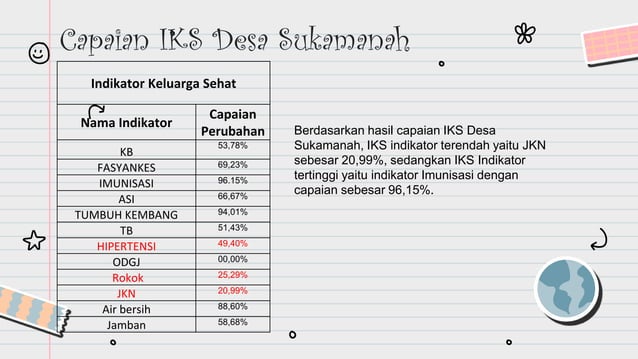 Capaian IKS Desa Sukamanah
Indikator Keluarga Sehat
Nama Indikator
Capaian
Perubahan
KB 53,78%
FASYANKES 69,23%
IMUNISASI 96.15%
ASI 66,67%
TUMBUH KEMBANG 94,01%
TB 51,43%
HIPERTENSI 49,40%
ODGJ 00,00%
Rokok 25,29%
JKN 20,99%
Air bersih 88,60%
Jamban 58,68%
Berdasarkan hasil capaian IKS Desa
Sukamanah, IKS indikator terendah yaitu JKN
sebesar 20,99%, sedangkan IKS Indikator
tertinggi yaitu indikator Imunisasi dengan
capaian sebesar 96,15%.